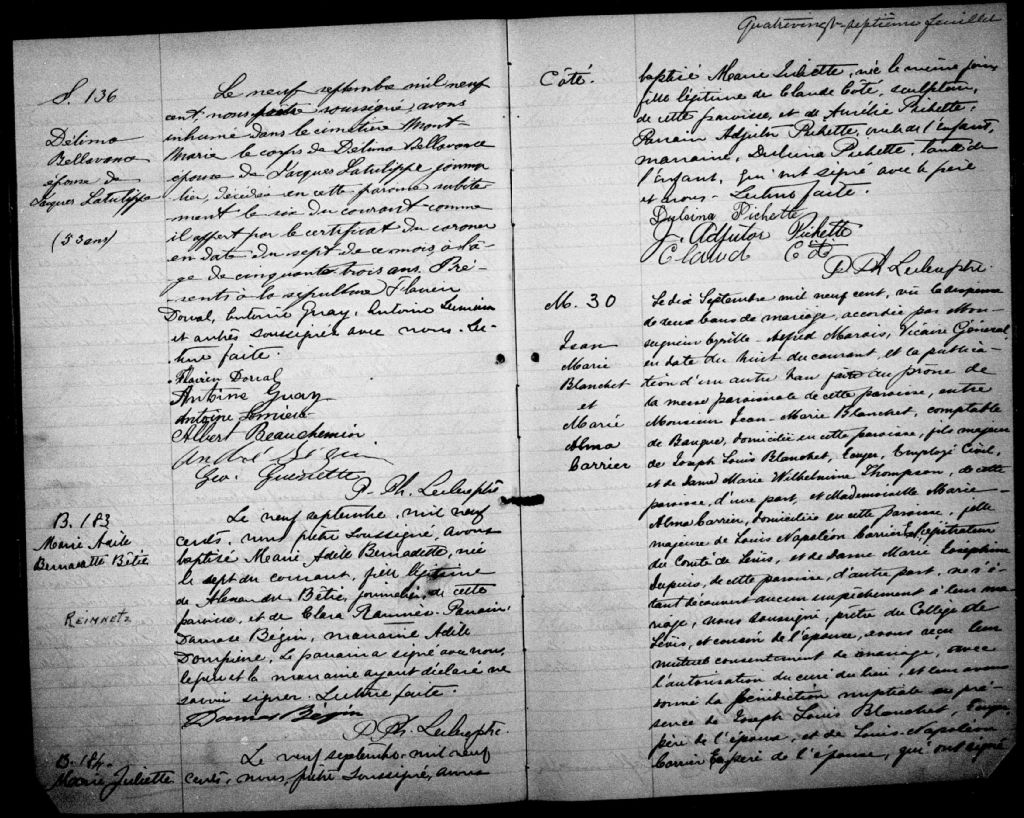 Quatrevingt-septième feuillet
S. 136
Délima
Bellavance
épouse de
Jacques Latulippe
(53 ans)
Le neuf septembre mil neuf
cent, nous prêtre soussigné, avons
inhumé dans le cimetière Mont-
Marie le corps de Délima Bellavance
épouse de Jacques Latulippe journa
lier, décédée en cette paroisse subite
ment le six du courant comme
il appert par le certificat du coroner
en date du sept de ce mois à l'â-
ge de cinquante trois ans. Pré-
sents à la sépulture Flavien
Dorval, Antoine Guay, Antoine Lemieux
et autres soussignés avec nous. Lec-
ture faite.
Flavien Dorval
Antoine Guay
Antoine Lemieux
Albert Beauchemin
André
Geo. Guenette
P. Ph. Leclerc ptre
B. 183
Marie Adèle
Bernadette Bétie
Reimnetz
Le neuf septembre, mil neuf
cents, nous prêtre soussigné, avons
baptisé Marie Adèle Bernadette, née
le sept du courant, fille légitime
de Alexandre Bétie, journalier, de cette
paroisse, et de Clara Parrain
Damase Bégin, marraine Adèle
Dompierre. Le parrain a signé avec nous,
le père et la marraine ayant déclaré ne
savoir signer. Lecture faite.
Damas Bégin
P. Ph. Leclerc ptre.
B. 184
Marie Juliette
Le neuf septembre mil neuf
cents, nous, prêtre soussigné, avons
Côté.
baptisé Marie Juliette, née le même jour
fille légitime de Claude Côté, sculpteur,
de cette paroisse, et de Aurélie Pichette.
Parrain Adjutor Pichette, oncle de l'enfant,
marraine, Dulvina Pichette, tante de
l'enfant, qui ont signé avec le père
et nous. Lecture faite.
Dulvina Pichette
J. Adjutor Pichette
Claud Côté
P. Ph. Leclerc ptre.
M. 30
Jean
Marie
Blanchet
et
Marie
Alma
Carrier
Le dix Septembre mil neuf cent, vu la dispense
de deux bans de mariage, accordée par Mon-
seigneur Cyrille Alfred Marois, Vicaire Général
en date du huit du courant, et la publica-
tion d'un autre ban faite au prone de
la messe paroissiale de cette paroisse, entre
Monsieur Jean-Marie Blanchet, comptable
de Banque, domicilié en cette paroisse, fils majeur
de Joseph Louis Blanchet, Ecuyer, Employé Civil,
et de Dame Marie Wilhelmine Thompson, de cette
paroisse, d'une part, et Mademoiselle Marie-
Alma Carrier, domiciliée en cette paroisse, fille
majeure de Louis Napoléon Carrier Er, Régistrateur
du Comté de Lévis, et de Dame Marie Joséphine
Dupuis, de cette paroisse, d'autre part, ne s'é-
tant découvert aucun empêchement à leur ma-
riage, nous soussigné, prêtre du Collège de
Lévis, et cousin de l'épouse, avons reçu leur
mutuel consentement de mariage, avec
l'autorisation du curé du lieu, et leur avons
donné la bénédiction nuptiale en pré-
sence de Joseph Louis Blanchet, Ecuyer
père de l'époux, et de Louis-Napoléon
Carrier Er, père de l'épouse, qui ont signé